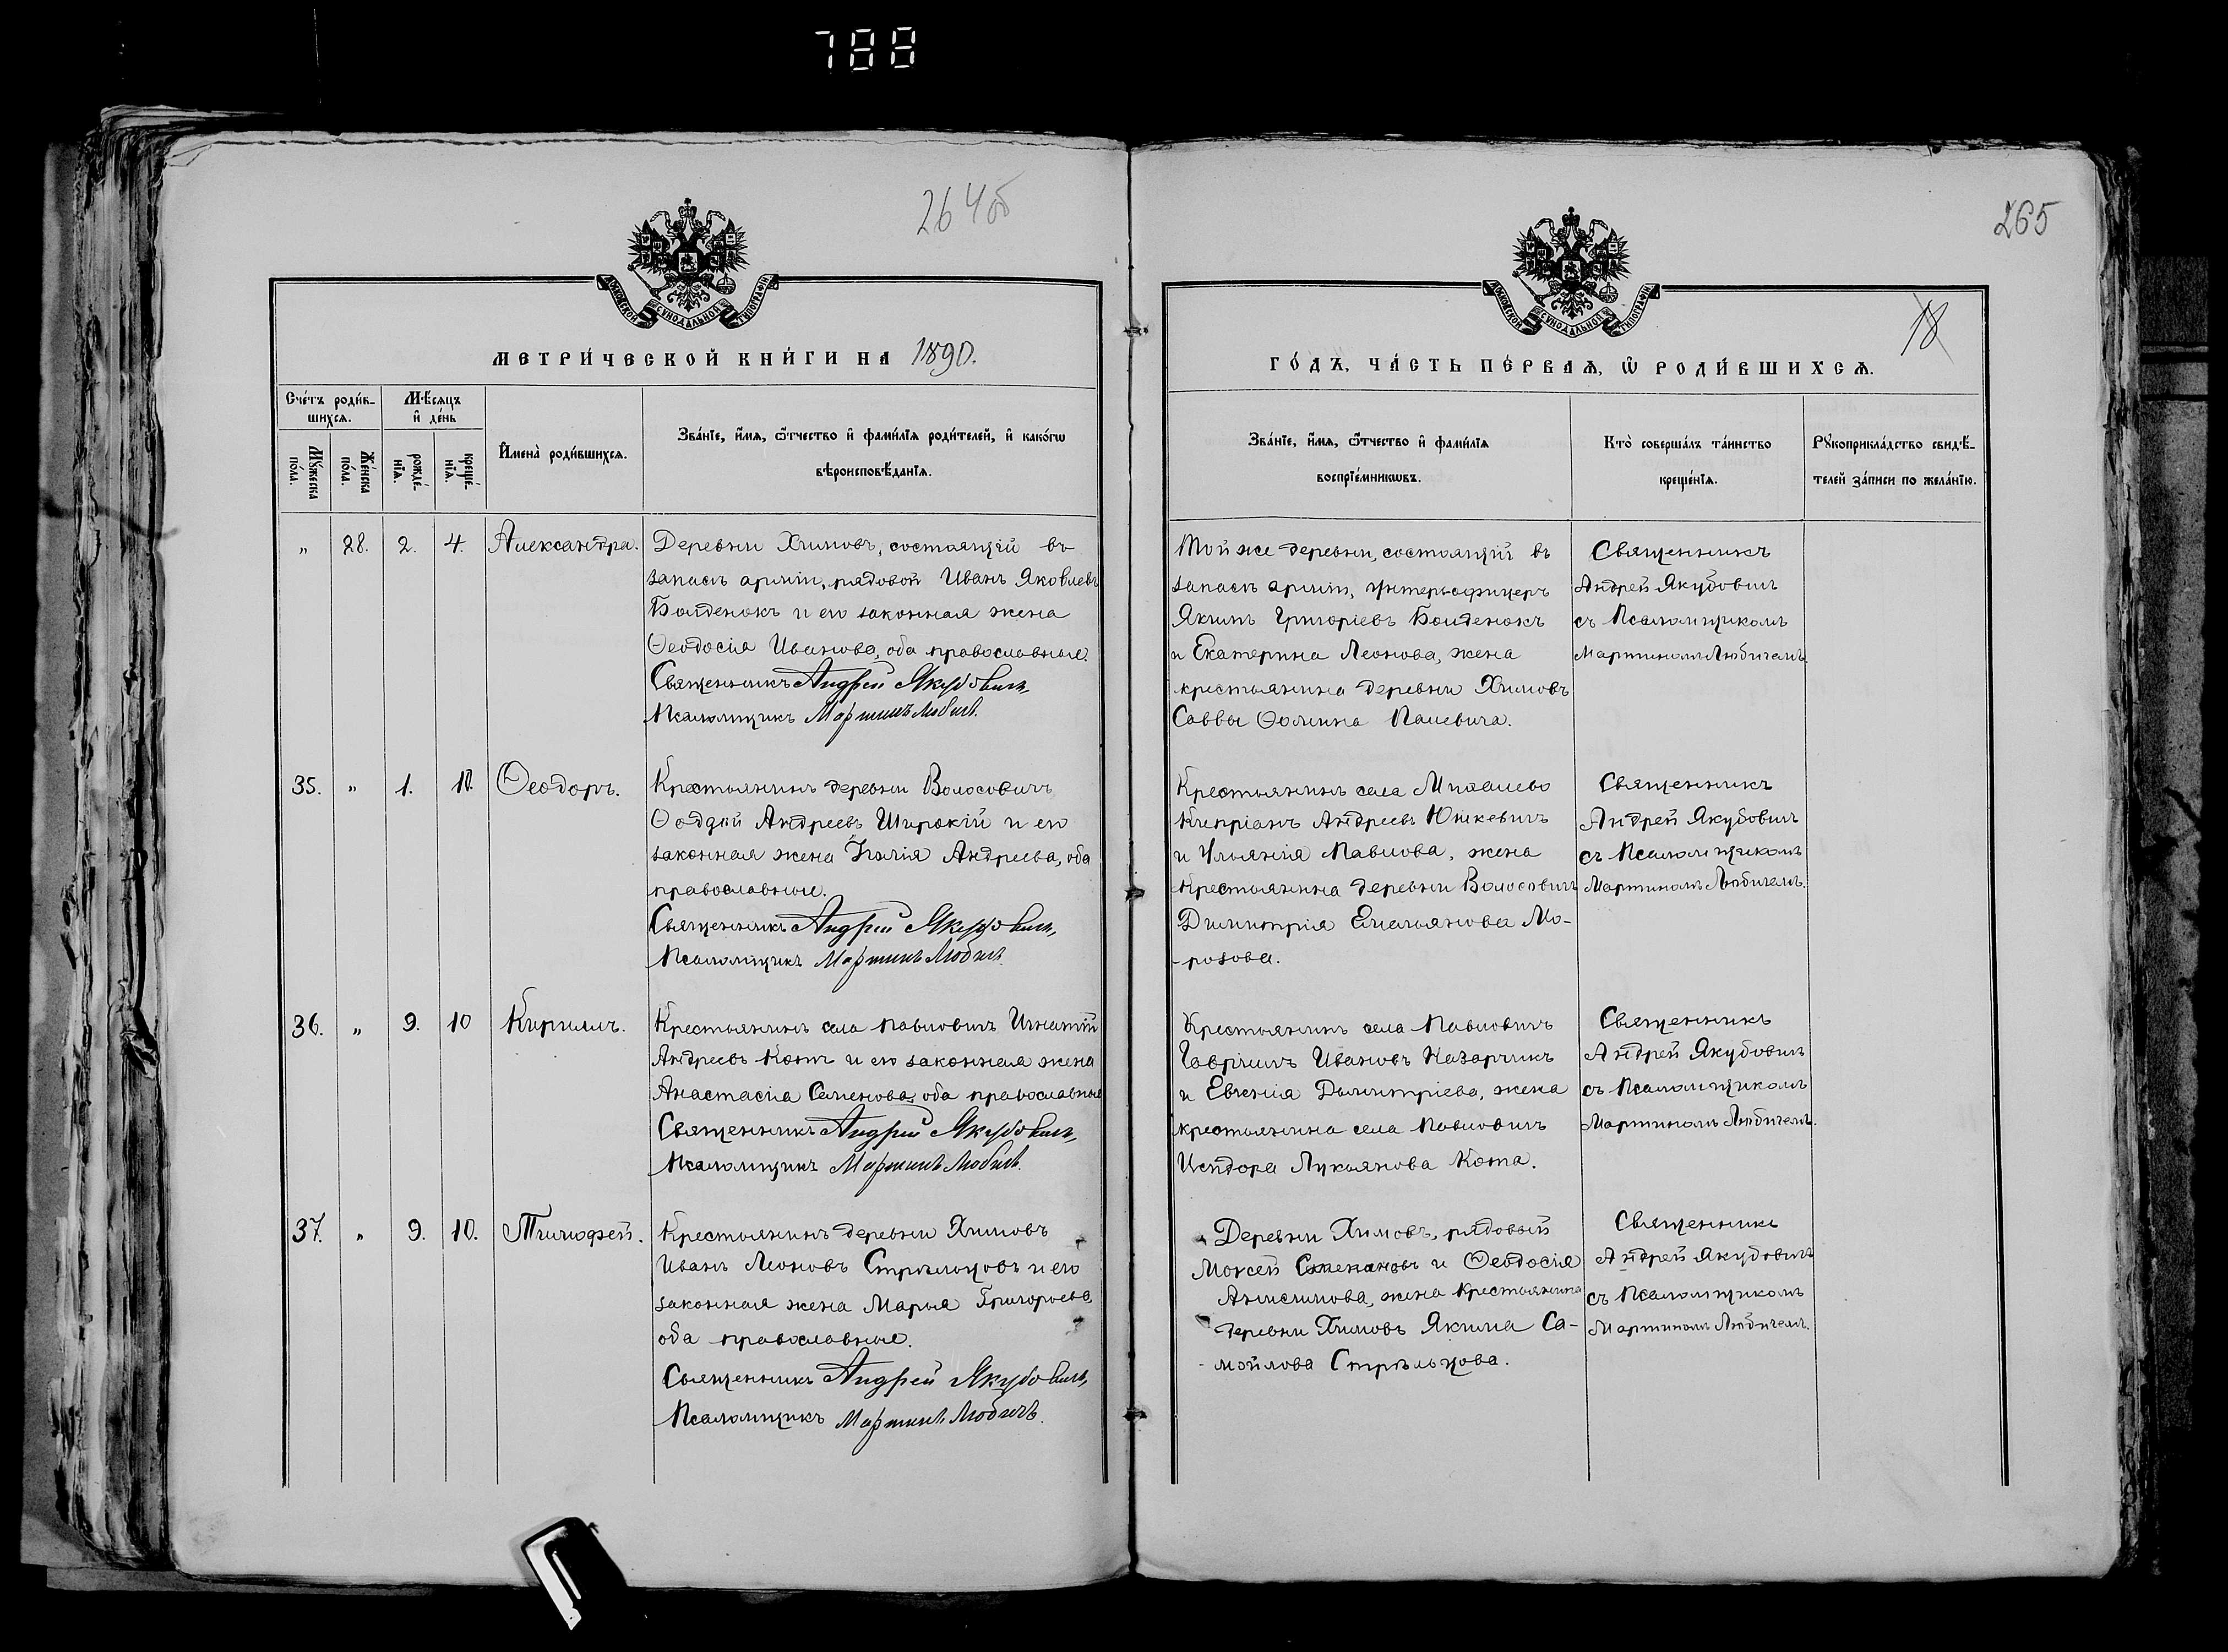 788
264об
265
18
МОСКОВСКОЙ СУНОДАЛЬНОЙ ТИПОГРАФІИ
МОСКОВСКОЙ СУНОДАЛЬНОЙ ТИПОГРАФІИ
МЕТРИ́ЧЕСКОЙ КНИ́ГИ НА 1890.
ГО́ДЪ, ЧА́СТЬ ПЕ́РВАѦ, Ѡ҆ РОДИ́ВШИХСѦ.
Сче́тъ роди́в-
шихсѧ.
Мѣ́сѧцъ
и҆ де́нь
Мꙋ́жеска
по́ла.
Же́нска
по́ла.
рожде́-
нїѧ.
креще́-
нїѧ.
И҆мена̀ роди́вшихсѧ.
Зва́нїе, и҆́мѧ, ѻ҆́тчество и҆ фами́лїѧ роди́телей, и҆ како́гѡ
вѣроисповѣ́данїѧ.
Зва́нїе, и҆́мѧ, ѻ҆́тчество и҆ фами́лїѧ
воспрїе́мникѡвъ.
Кто̀ соверша́лъ та́инство
креще́нїѧ.
Рꙋкоприкла́дство свидѣ́-
телей за́писи по жела́нїю.
„ 28. 2. 4. Александра.
Деревни Химовъ, состоящій въ
запасѣ арміи, рядовой Иванъ Яковлевъ
Болденокъ и его законная жена
Ѳеодосія Иванова, оба православные.
Священникъ Андрей Якубовичъ,
Псаломщикъ Мартинъ Любичъ.
Той же деревни, состоящій въ
запасѣ арміи, унтеръ-офицеръ
Якимъ Григоріевъ Болденокъ
и Екатерина Леонова, жена
крестьянина деревни Химовъ
Саввы Ѳомина Палевича.
Священникъ
Андрей Якубовичъ
съ Псаломщикомъ
Мартиномъ Любичемъ.
35. „ 1. 10. Ѳеодоръ.
Крестьянинъ деревни Волосовичъ
Ѳаддей Андреевъ Широкій и его
законная жена Іулія Андреева, оба
православные.
Священникъ Андрей Якубовичъ,
Псаломщикъ Мартинъ Любичъ
Крестьянинъ села Михалево
Кипріанъ Андреевъ Юшкевичъ
и Ульянія Павлова, жена
крестьянина деревни Волосовичъ
Димитрія Емельянова Мо-
-розова.
Священникъ
Андрей Якубовичъ
съ Псаломщикомъ
Мартиномъ Любичемъ.
36. „ 9. 10 Кириллъ.
Крестьянинъ села Павловичъ Игнатій
Андреевъ Котъ и его законная жена
Анастасія Семенова, оба православные
Священникъ Андрей Якубовичъ,
Псаломщикъ Мартинъ Любичъ.
Крестьянинъ села Павловичъ
Гавріилъ Ивановъ Казарчикъ
и Евгенія Димитріева, жена
крестьянина села Павловичъ
Исидора Лукьянова Кота.
Священникъ
Андрей Якубовичъ
съ Псаломщикомъ
Мартиномъ Любичемъ.
37. „ 9. 10. Тимофей.
Крестьянинъ деревни Химовъ
Иванъ Леоновъ Стрѣльцовъ и его
законная жена Марья Григорьева,
оба православные.
Священникъ Андрей Якубовичъ,
Псаломщикъ Мартинъ Любичъ.
Деревни Химовъ, рядовый
Моисей Степановъ и Ѳеодосія
Анисимова, жена крестьянина
деревни Химовъ Якима Са-
-мойлова Стрѣльцова.
Священникъ
Андрей Якубовичъ
съ Псаломщикомъ
Мартиномъ Любичемъ.